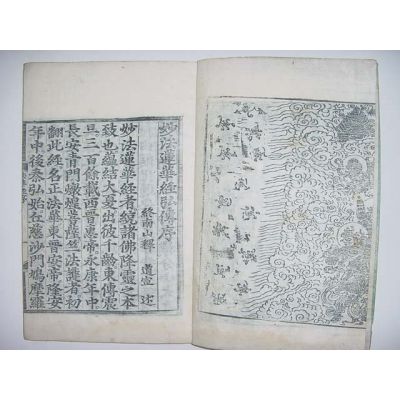 妙法蓮華經弘傳序
終南山釋 道宣 述
妙法蓮華經者統諸佛降靈之本
致也蘊結大夏出彼千齡東傳震
旦三百餘載西晋惠帝永康年中
長安青門燉煌菩薩竺法護者初
翻此經名正法華東晋安帝隆安
年中後秦弘始丘慈沙門鳩摩羅